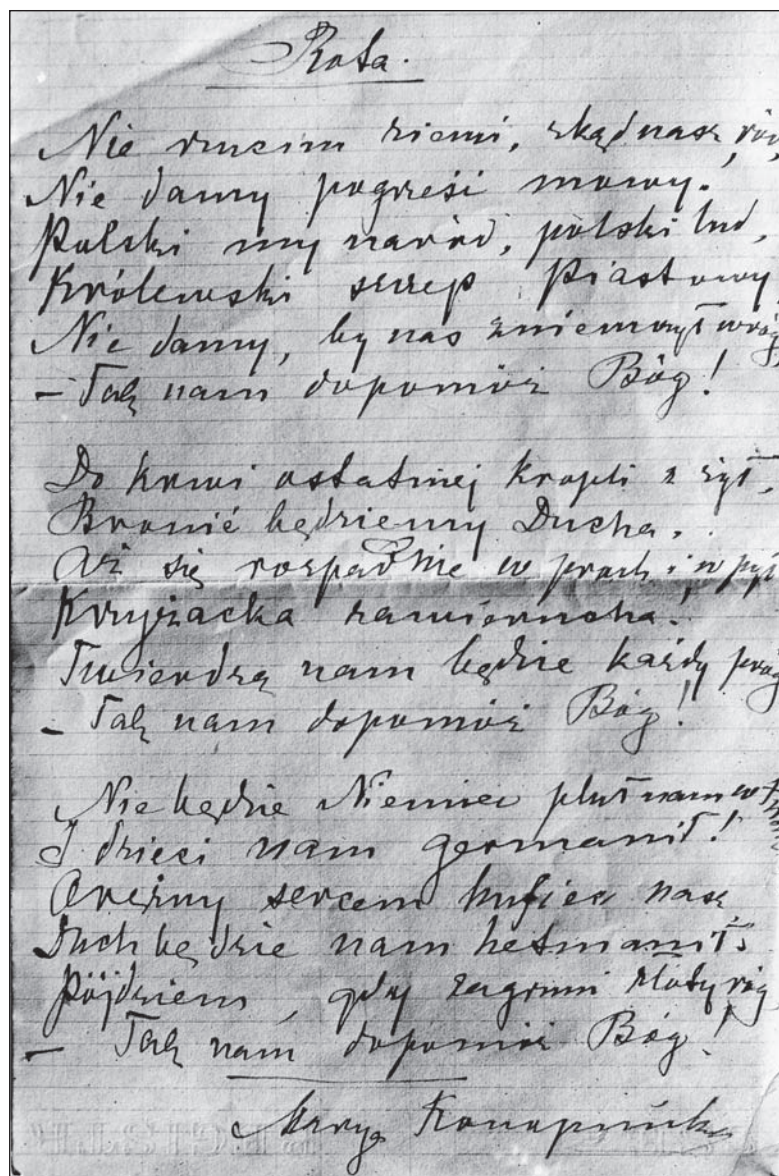 Rota.
Nie rzucim ziemi, skąd nasz ród,
Nie damy pogrześć mowy.
Polski my naród, polski lud,
Królewski szczep Piastowy
Nie damy, by nas zniemczył wróg
– Tak nam dopomóż Bóg!
Do krwi ostatniej kropli z żył,
Bronić będziemy Ducha,
Aż się rozpadnie w proch i w pył
Krzyżacka zawierucha.
Twierdzą nam będzie każdy próg
– Tak nam dopomóż Bóg!
Nie będzie Niemiec pluł nam w twarz
I dzieci nam germanił!
Orężny sercem hufiec nasz
Duch będzie nam hetmanił.
Pójdziem, gdy zagrzmi złoty róg
– Tak nam dopomóż Bóg!
Konopnicka